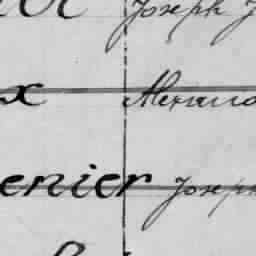 Joseph J
x Alexand
enier Joseph